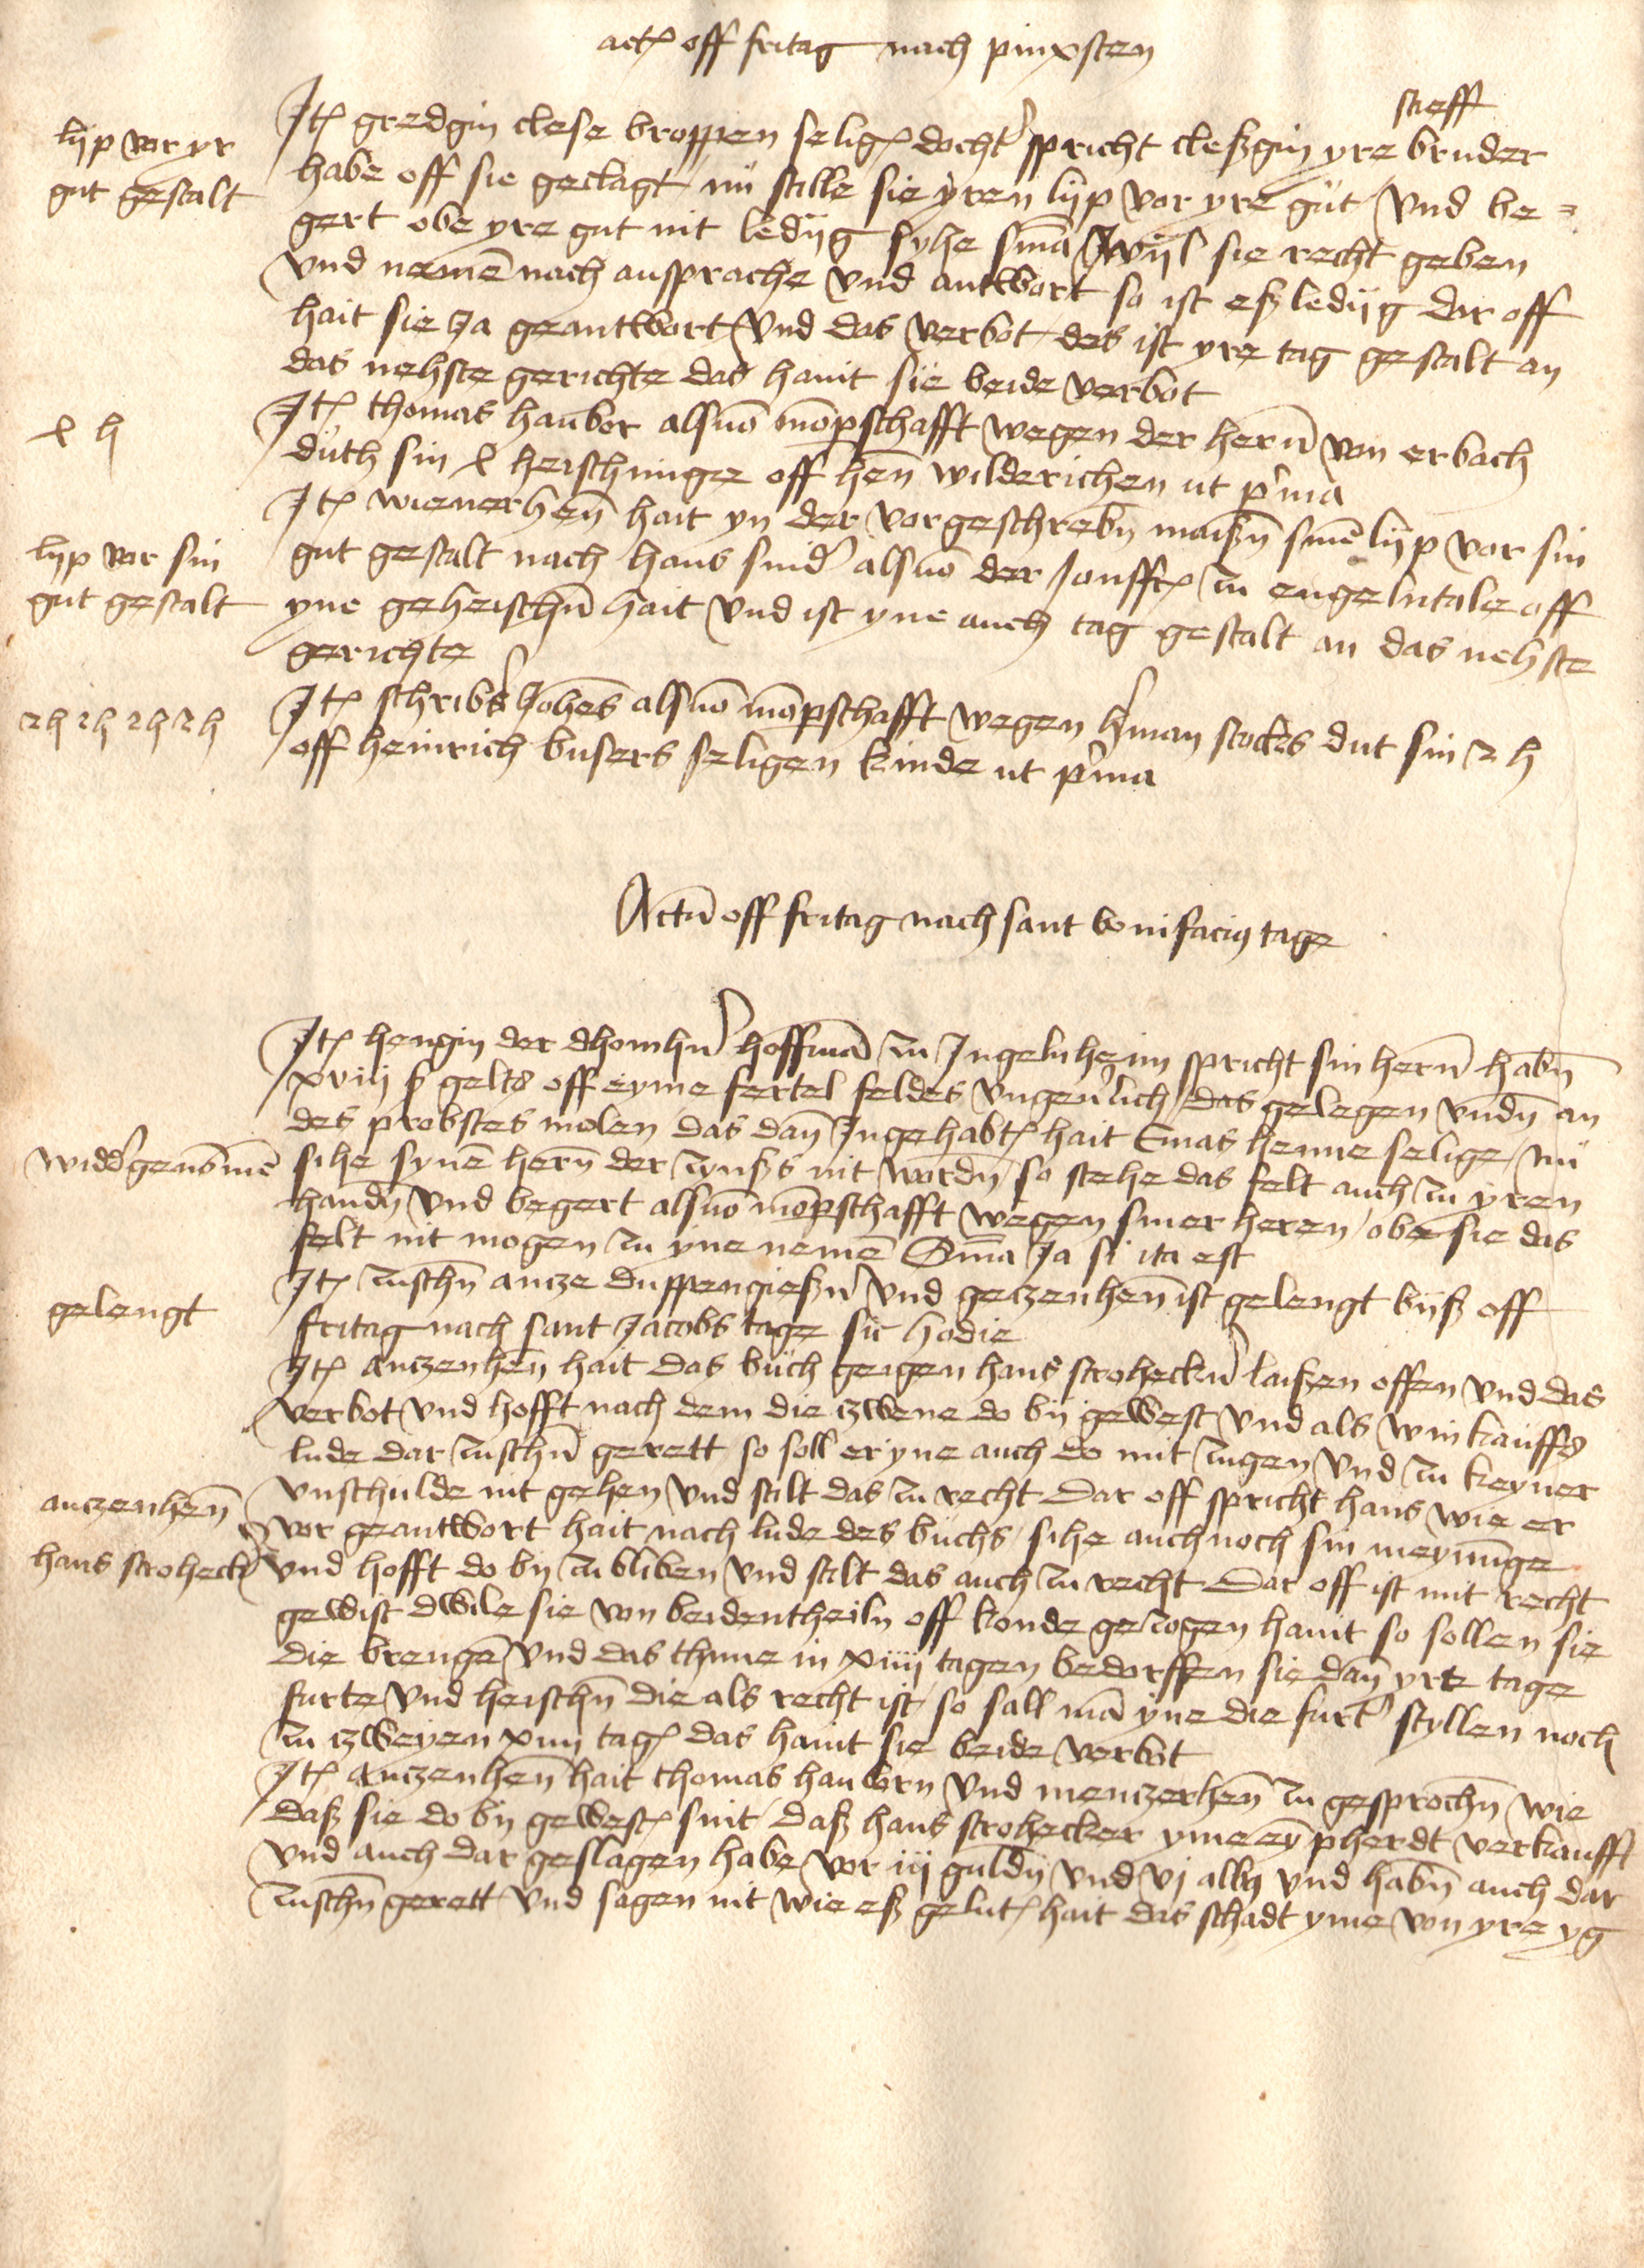 actꝫ off fritag nach pinxsten
stieff
lijp vor yr
gut gestalt
Jtꝫ gredgin clese broppen seligꝫ docht' spricht cleßgin yre bruder
habe off sie geclagt nü stille sie yren lijp vor yre gut vnd be=
gert obe yre gut nit ledijg syhe sm̄a wijl sie recht geben
vnd nemē nach ansprache vnd antwort so ist eß ledijg dar off
hait sie Ja geantwort vnd das verbot des ist yre tag gestalt an
das nehste gerichte das hanit sie beide verbot
ꝛ h
Jtꝫ thomas hauber alsuō mōpschafft wegen der hern̄ von erbach
düth sin ꝛ heischunge off hen̄ wilderichen ut p'ma
lijp vor sin
gut gestalt
Jtꝫ wienerhen̄ hait yn der vorgeschrebn̄ maißn̄ sinē lijp vor sin
gut gestalt nach hans snid' alsuō der Jonffrꝫ zu engelntale off
yne geheischn̄ hait vnd ist yne auch tag gestalt an das nehste
gerichte
2 h 2 h 2 h 2 h
Jtꝫ schrib's Johēs alsuō mōpschafft wegen h'man stocks dut sin 2 h
off heinrich busers seligen kinde ut p'ma
Actū off fritag nach sant bonifacius tage
Jtꝫ hengin der dhomhn' hoffmā zu Jngelnheim spricht sin hern̄ habn̄
xviij ß gelts off eyme fertel feldes vngeu'lich das gelegen vndn̄ an
des probstes molen das dan̄ Jngehabtꝫ hait Emas henne selige nü
widd'genōmē
sihe synē hern̄ der zynßs nit wordn̄ so stehe das felt auch zu yren
handn̄ vnd begert alsuō mōpschafft wegen siner heren obe sie das
felt nit mogen zu yne nemē Sm̄a Ja si ita est
gelengt
Jtꝫ zuschn̄ ancze duppengießn' vnd geczenhen̄ ist gelengt bijß off
fritag nach sant Jacobs tage sic hodie
Jtꝫ anczenhen̄ hait das büch geigen hans stroheckn' laißen offen vnd das
verbot vnd hofft nach dem die zwene do bij gewest vnd als winkauffs
lude dar zuschn̄ gerett so soll er yne auch do mit zugen vnd zu keyner
anczenhen̄
vnschulde nit gehen vnd stilt das zu recht Dar off spricht hans wie er
vor geantwort hait nach lude des büchs sihe auch noch sin meynūge
hans stroheck'
vnd hofft do by zu bliben vnd stilt das auch zu recht Dar off ist mit recht
gewist dwile sie von beidentheiln off konde gezogen hanit so sollen sie
die brengē vnd das thune in xiiij tagen bedorffen sie dan̄ yrte tage
furte vnd heischn̄ die als recht ist so sall mā yne die furt' styllen noch
zu zweyen xiiij tagꝫ das hanit sie beide verbot
Jtꝫ anczenhen̄ hait thomas haubern vnd menczerhen̄ zu gesprochn̄ wie
daß sie do bij gewestꝫ sint daß hans strohecker yme eȳ pherdt verkaufft
vnd auch dar geslagen habe vor iij guldn̄ vnd vj albs vnd habn̄ auch dar
zuschn̄ gerett vnd sagen nit wie eß gelutꝫ hait das schadt yme von yre yg